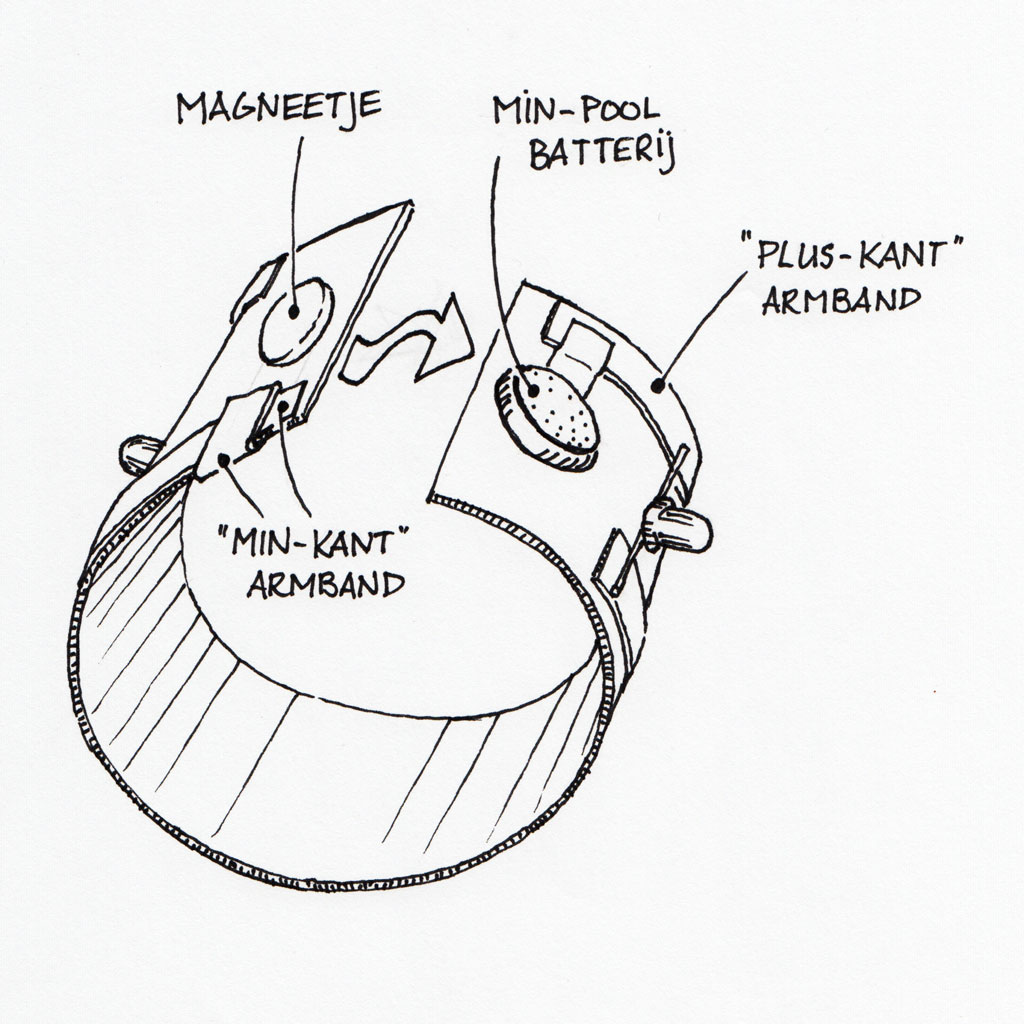 MAGNEETJE
MIN-POOL
BATTERIJ
"PLUS-KANT"
ARMBAND
"MIN-KANT"
ARMBAND